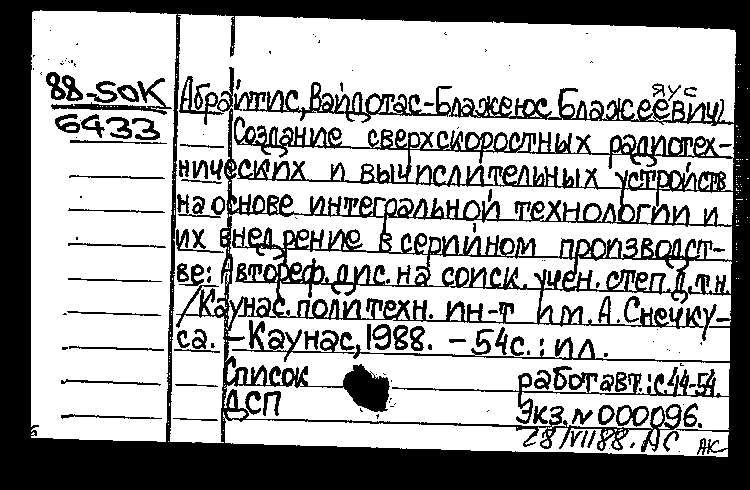 88-5ОК
6433
яус
Абрайтис, Вайдотас-Блажеюс Блажеевич.
Создание сверхскоростных радиотех-
нических и вычислительных устройств
на основе интегральной технологии и
их внедрение в серийном производст-
ве: Автореф. дис. на соиск. учен. степ. д.т.н.
/Каунас. политехн. ин-т им. А. Снечку-
са. – Каунас, 1988. – 54с. : ил.
Список работ авт.: с.44-54.
ДСП Экз. № 000096.
28/VII88. АС АК